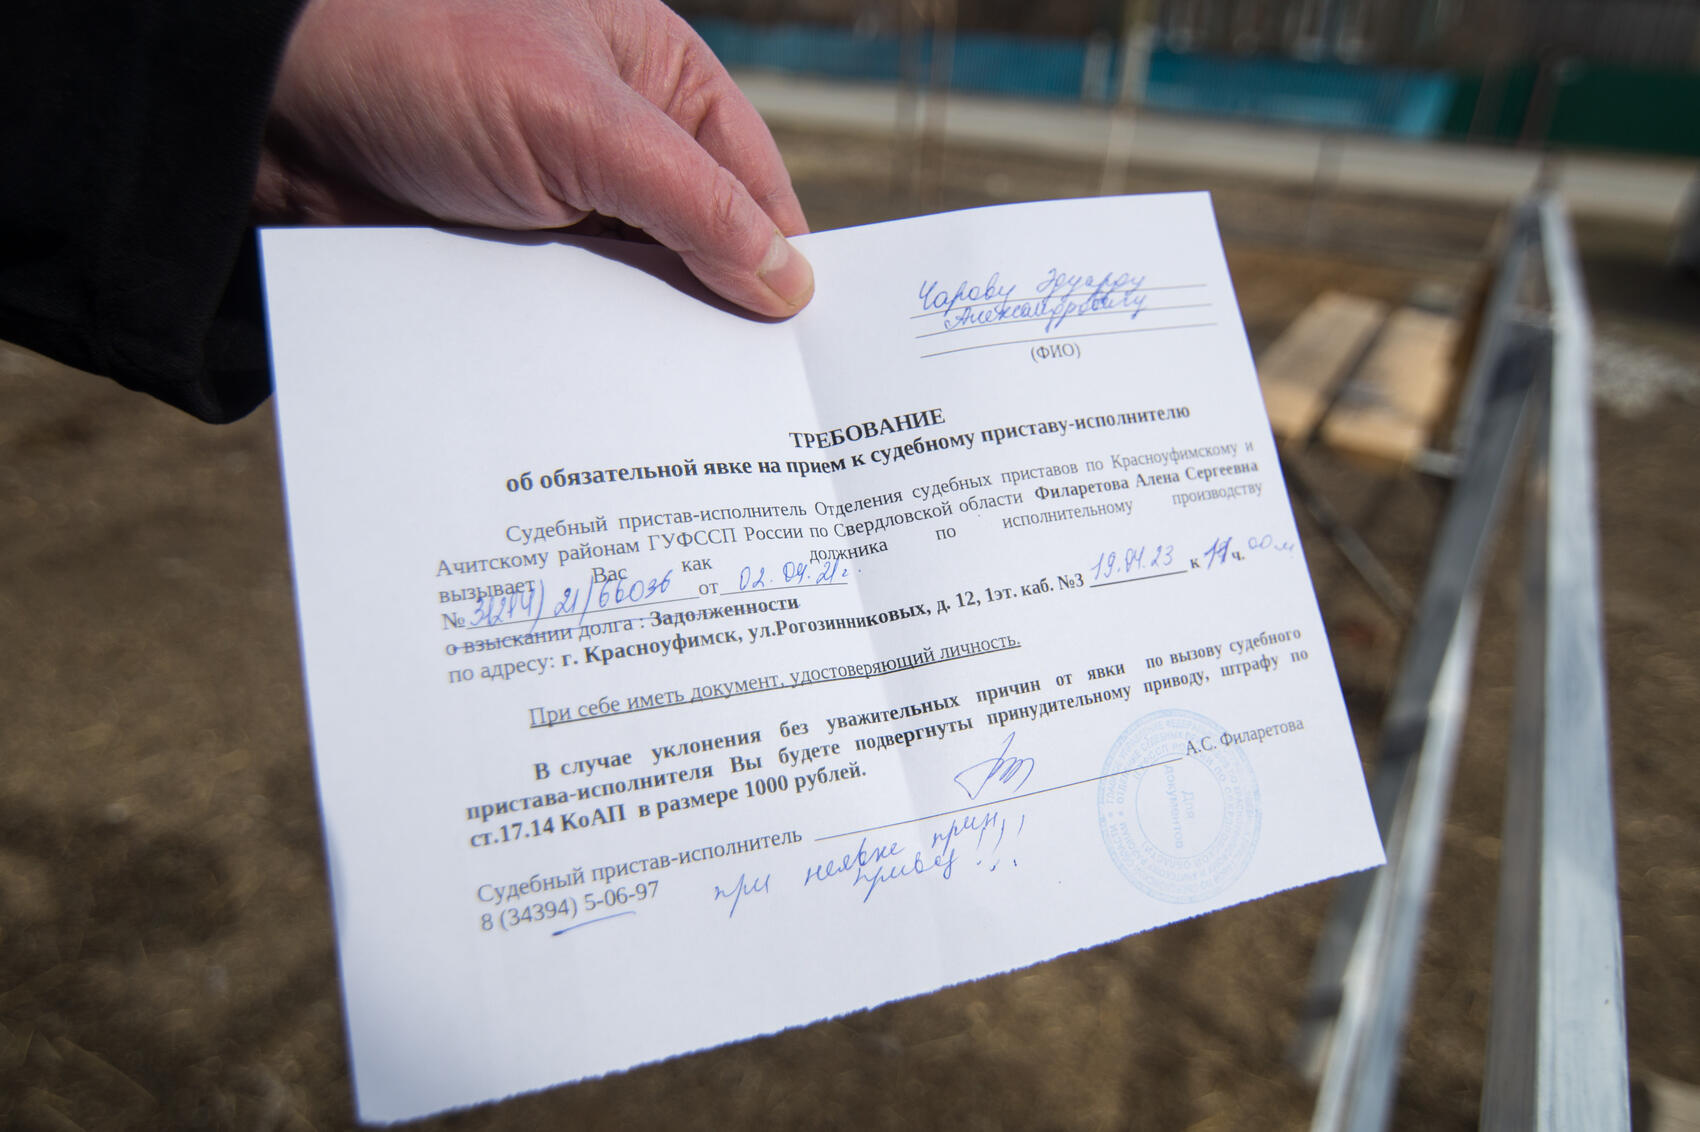 Чарову Эдуарду
Александровичу
(ФИО)
ТРЕБОВАНИЕ
об обязательной явке на прием к судебному приставу-исполнителю
Судебный пристав-исполнитель Отделения судебных приставов по Красноуфимскому и
Ачитскому районам ГУФССП России по Свердловской области Филаретова Алена Сергеевна
вызывает Вас как должника по исполнительному производству
№ 21/66036 от 02.04.21г.
о взыскании долга : Задолженности
по адресу: г. Красноуфимск, ул.Рогозинниковых, д. 12, 1эт. каб. №3 19.04.23 к ч. 00 м
При себе иметь документ, удостоверяющий личность.
В случае уклонения без уважительных причин от явки по вызову судебного
пристава-исполнителя Вы будете подвергнуты принудительному приводу, штрафу по
ст.17.14 КоАП в размере 1000 рублей.
Судебный пристав-исполнитель А.С. Филаретова
8 (34394) 5-06-97
при неявке прин
привод !!!
Для
документов